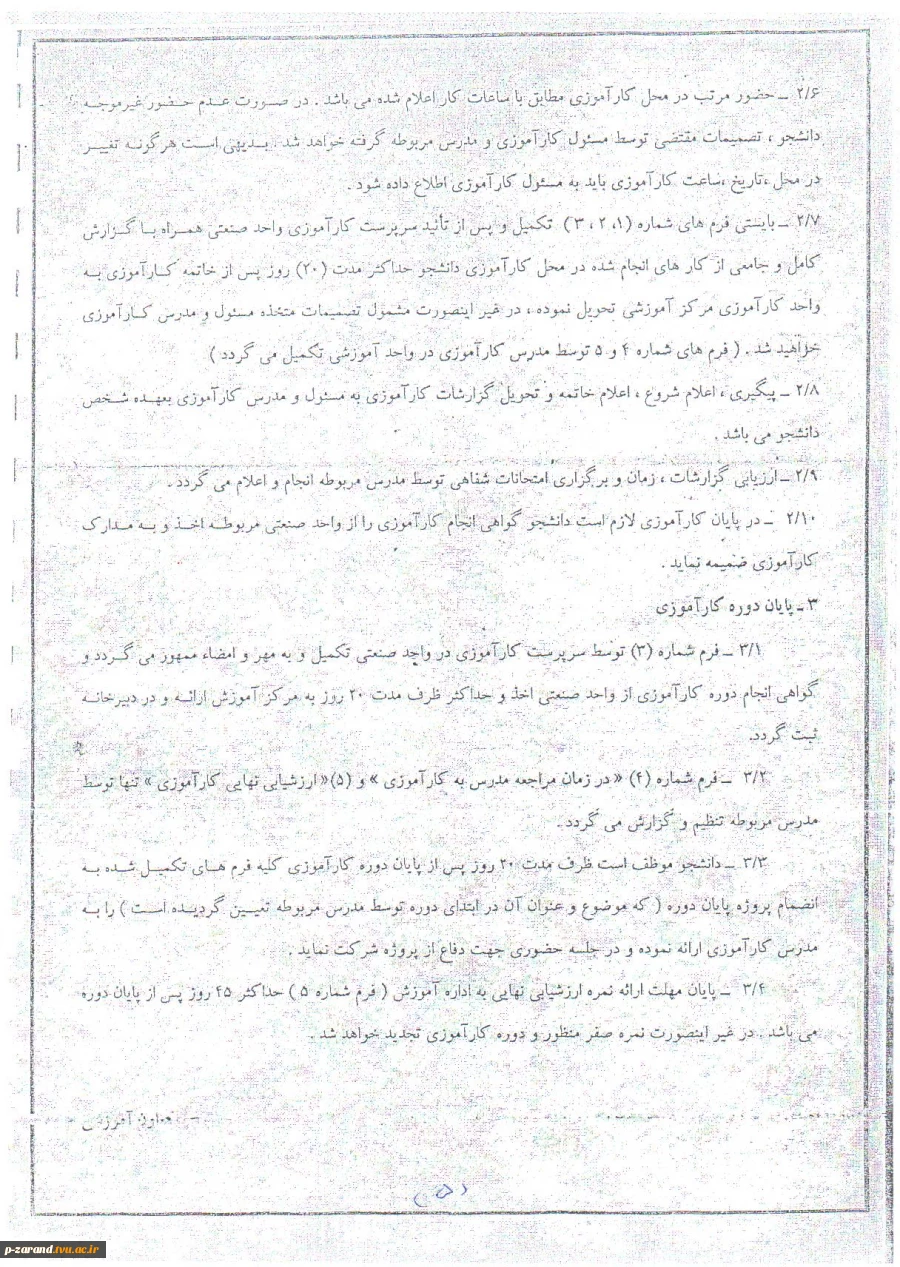 ۲/۶ – حضور مرتب در محل کارآموزی مطابق با ساعات کار اعلام شده می باشد . در صورت عدم حضور غیرموجه
دانشجو ، تصمیمات مقتضی توسط مسئول کارآموزی و مدرس مربوطه گرفته خواهد شد . بدیهی است هرگونه تغییر
در محل ،تاریخ ،ساعت کارآموزی باید به مسئول کارآموزی اطلاع داده شود .
۲/۷ – بایستی فرم های شماره (۱، ۲ ، ۳ ) تکمیل و پس از تأئید سرپرست کارآموزی واحد صنعتی همراه با گزارش
کامل و جامعی از کار های انجام شده در محل کارآموزی دانشجو حداکثر مدت (۲۰) روز پس از خاتمه کارآموزی به
واحد کارآموزی مرکز آموزشی تحویل نموده ، در غیر اینصورت مشمول تصمیمات متخذه مسئول و مدرس کارآموزی
خواهید شد . ( فرم های شماره ۴ و ۵ توسط مدرس کارآموزی در واحد آموزشی تکمیل می گردد )
۲/۸ – پیگیری ، اعلام شروع ، اعلام خاتمه و تحویل گزارشات کارآموزی به مسئول و مدرس کارآموزی بعهده شخص
دانشجو می باشد .
۲/۹ – ارزیابی گزارشات ، زمان و برگزاری امتحانات شفاهی توسط مدرس مربوطه انجام و اعلام می گردد .
۲/۱۰ – در پایان کارآموزی لازم است دانشجو گواهی انجام کارآموزی را از واحد صنعتی مربوطه اخذ و به مدارک
کارآموزی ضمیمه نماید .
۳ – پایان دوره کارآموزی
۳/۱ – فرم شماره (۳) توسط سرپرست کارآموزی در واحد صنعتی تکمیل و به مهر و امضاء ممهور می گردد و
گواهی انجام دوره کارآموزی از واحد صنعتی اخذ و حداکثر ظرف مدت ۲۰ روز به مرکز آموزش ارائه و در دبیرخانه
ثبت گردد.
۳/۲ – فرم شماره (۴) « در زمان مراجعه مدرس به کارآموزی » و (۵)« ارزشیابی نهایی کارآموزی » تنها توسط
مدرس مربوطه تنظیم و گزارش می گردد .
۳/۳ – دانشجو موظف است ظرف مدت ۲۰ روز پس از پایان دوره کارآموزی کلیه فرم های تکمیل شده به
انضمام پروژه پایان دوره ( که موضوع و عنوان آن در ابتدای دوره توسط مدرس مربوطه تعیین گردیده است ) را به
مدرس کارآموزی ارائه نموده و در جلسه حضوری جهت دفاع از پروژه شرکت نماید .
۳/۴ – پایان مهلت ارائه نمره ارزشیابی نهایی به اداره آموزش ( فرم شماره ۵ ) حداکثر ۴۵ روز پس از پایان دوره
می باشد . در غیر اینصورت نمره صفر منظور و دوره کارآموزی تجدید خواهد شد .
معاون آموزشی
(۵)
p-zarand.tvu.ac.ir